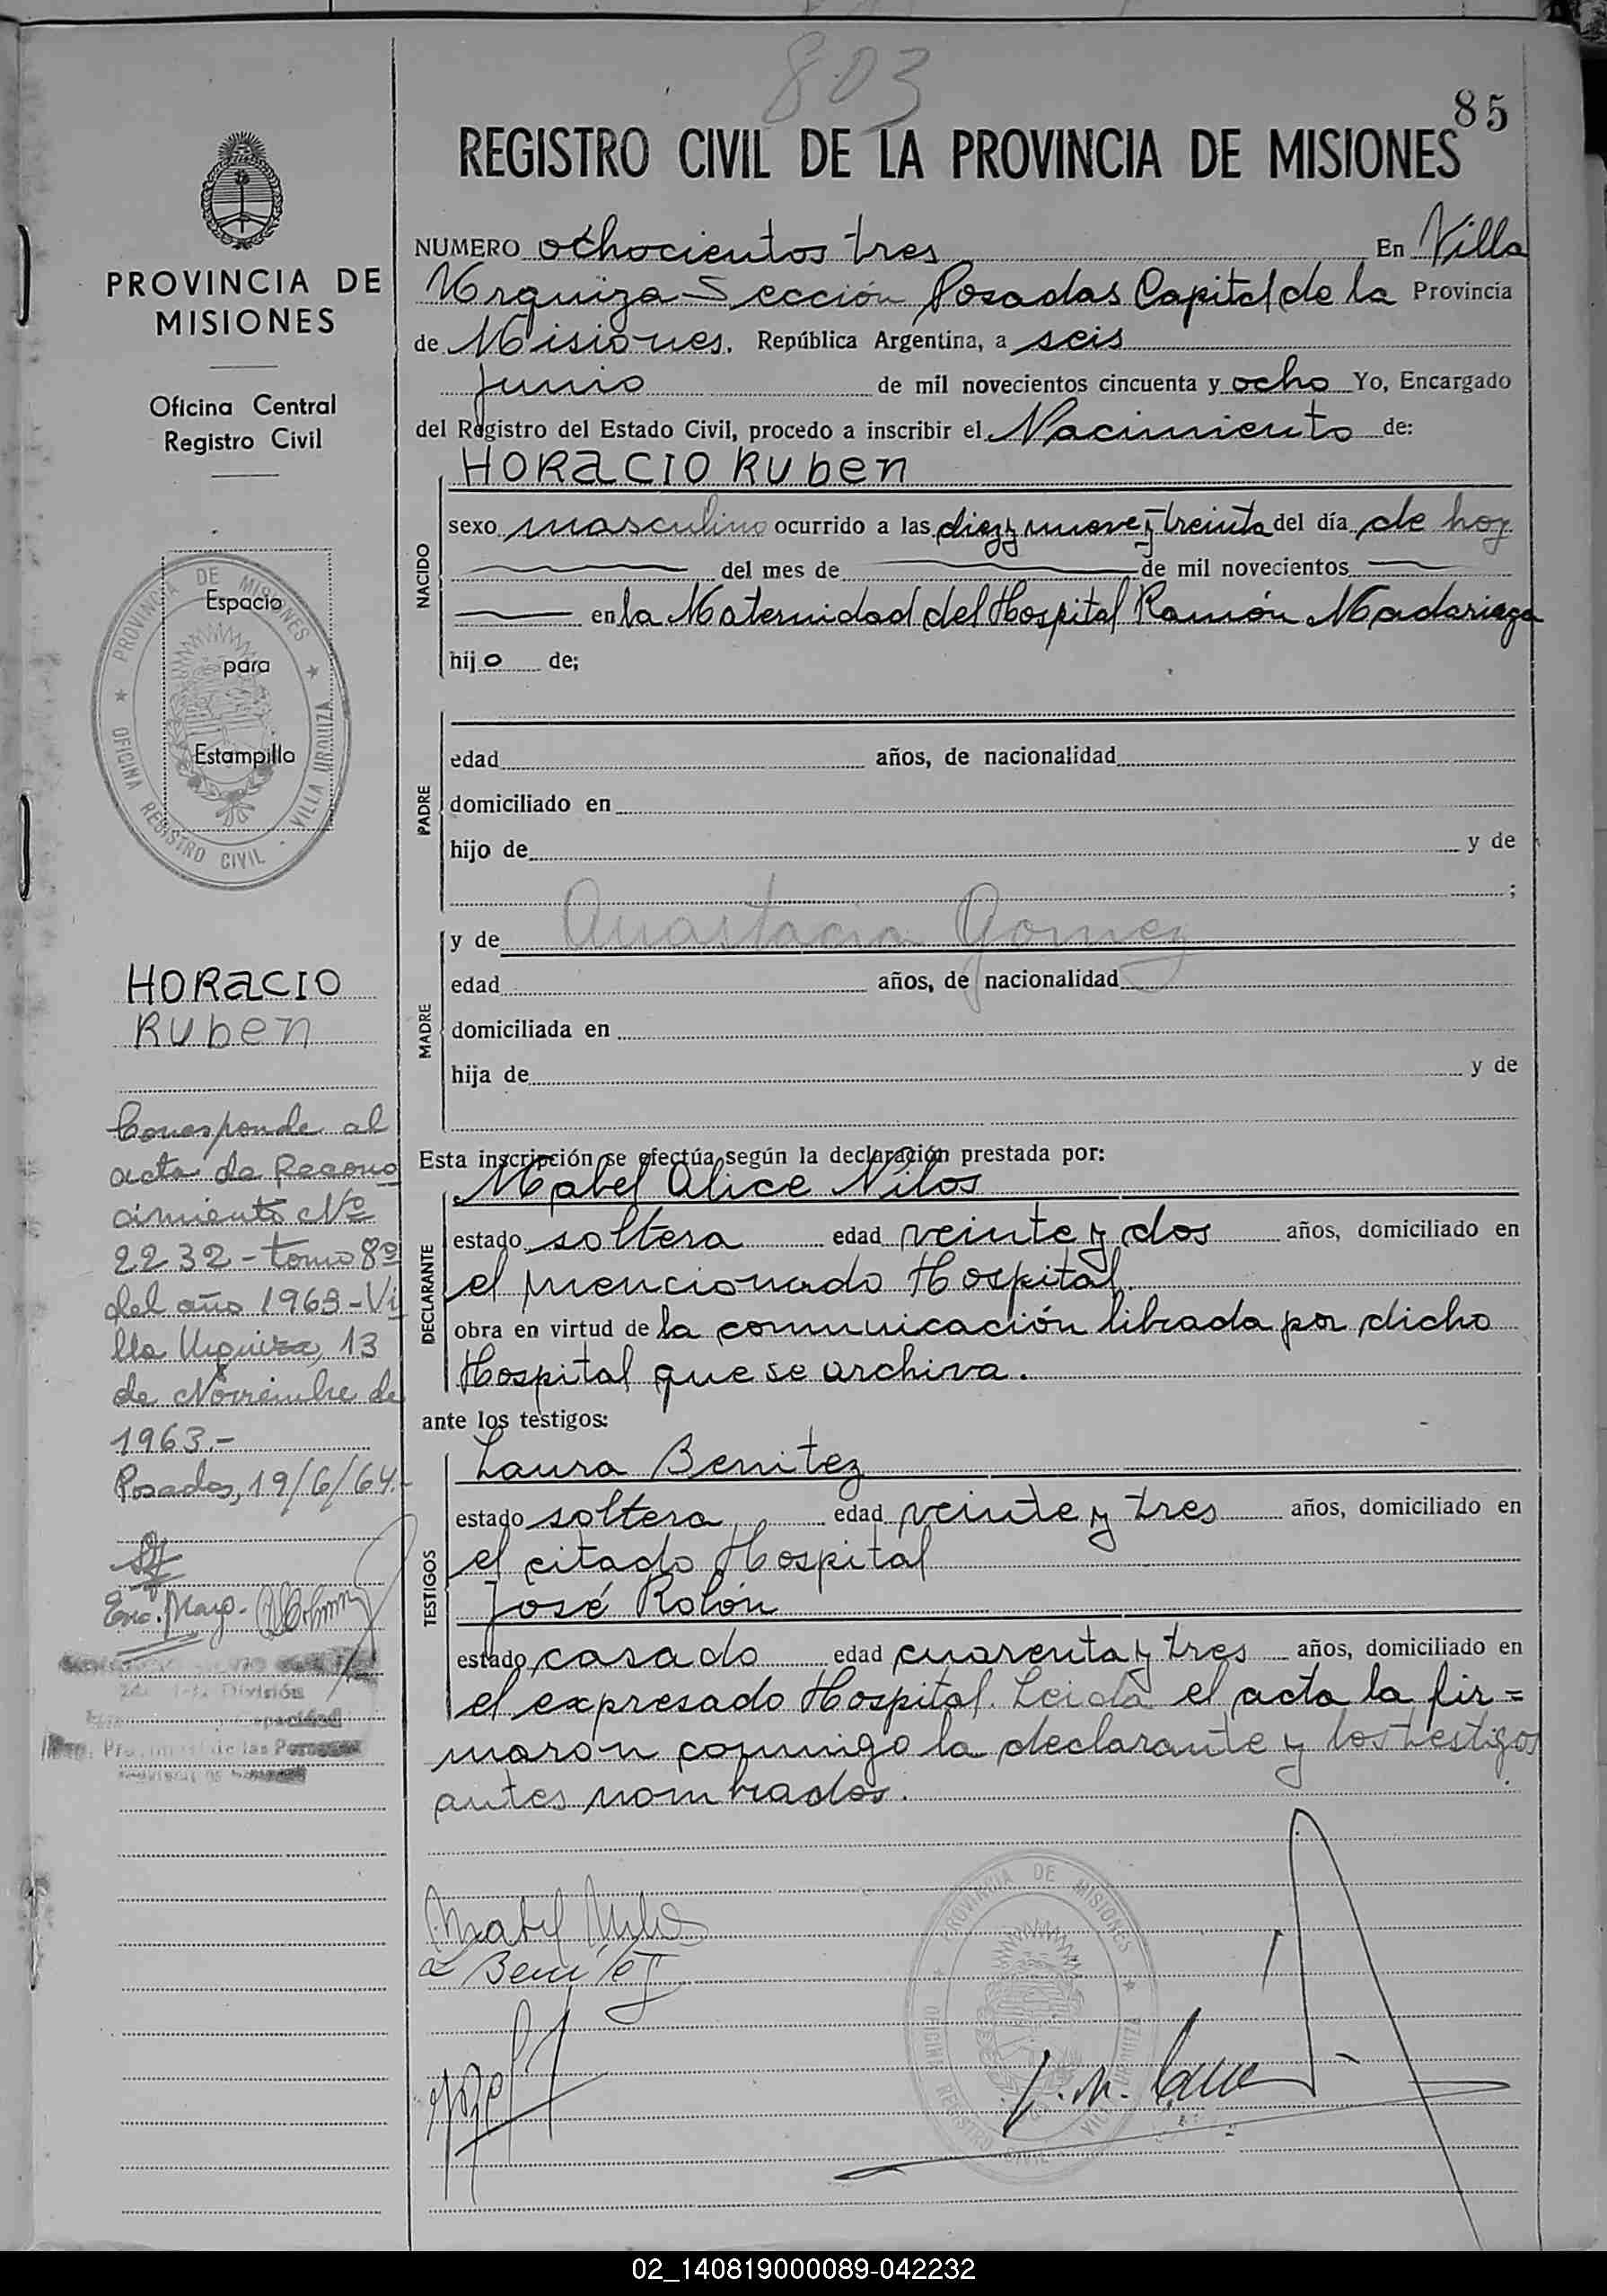 803
85
REGISTRO CIVIL DE LA PROVINCIA DE MISIONES
PROVINCIA DE
MISIONES
Oficina Central
Registro Civil
PROVINCIA DE MISIONES
OFICINA REGISTRO CIVIL - VILLA URQUIZA
Espacio
para
Estampilla
HORACIO
RUBEN
Corresponde al
acta de Recono
cimiento Nº
2232 - tomo 8º
del año 1963 - Vi
lla Urquiza, 13
de Noviembre de
1963.-
Posadas, 19/6/64.-
División
Capacidad
de las Personas
NUMERO ochocientos tres En Villa
Urquiza Sección Posadas Capital de la Provincia
de Misiones, República Argentina, a seis
junio de mil novecientos cincuenta y ocho Yo, Encargado
del Registro del Estado Civil, procedo a inscribir el Nacimiento de:
HORACIO RUBEN
NACIDO
sexo masculino ocurrido a las diez y nueve y treinta del día de hoy
del mes de de mil novecientos
en la Maternidad del Hospital Ramón Madariaga
hijo de;
PADRE
edad años, de nacionalidad
domiciliado en
hijo de y de
;
MADRE
y de Anastacia Gomez
edad años, de nacionalidad
domiciliada en
hija de y de
Esta inscripción se efectúa según la declaración prestada por:
Mabel Alice Nilos
DECLARANTE
estado soltera edad veinte y dos años, domiciliado en
el mencionado Hospital.
obra en virtud de la comunicación librada por dicho
Hospital que se archiva.
ante los testigos:
Laura Benitez
TESTIGOS
estado soltera edad veinte y tres años, domiciliado en
el citado Hospital
José Rolón
estado casado edad cuarenta y tres años, domiciliado en
el expresado Hospital. Leida el acta la fir=
maron conmigo la declarante y los testigos
antes nombrados.
Mabel Nilos
Benitez
PROVINCIA DE MISIONES
OFICINA REGISTRO CIVIL VILLA URQUIZA
02_140819000089-042232